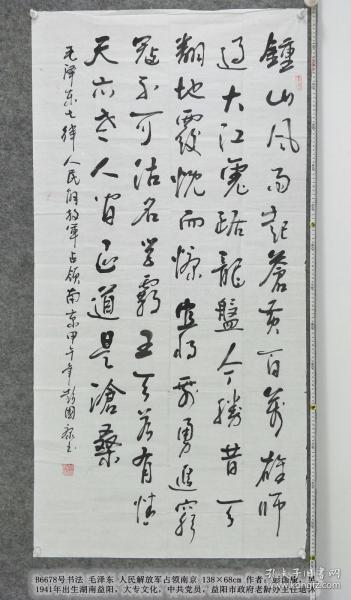 鍾山风雨起蒼黄百萬雄师
过大江虎踞龍盤今勝昔天
翻地覆慨而慷宜将剩勇追窮
寇不可沽名学霸王天若有情
天亦老人间正道是滄桑
毛泽东七律人民解放軍占领南京甲午年彭国
B6678号书法 毛泽东 人民解放军占领南京 138×68cm 作者：彭国
1941年出生湖南益阳，大专文化，中共党员，益阳市政府老龄办主任退休
孔夫子旧书网